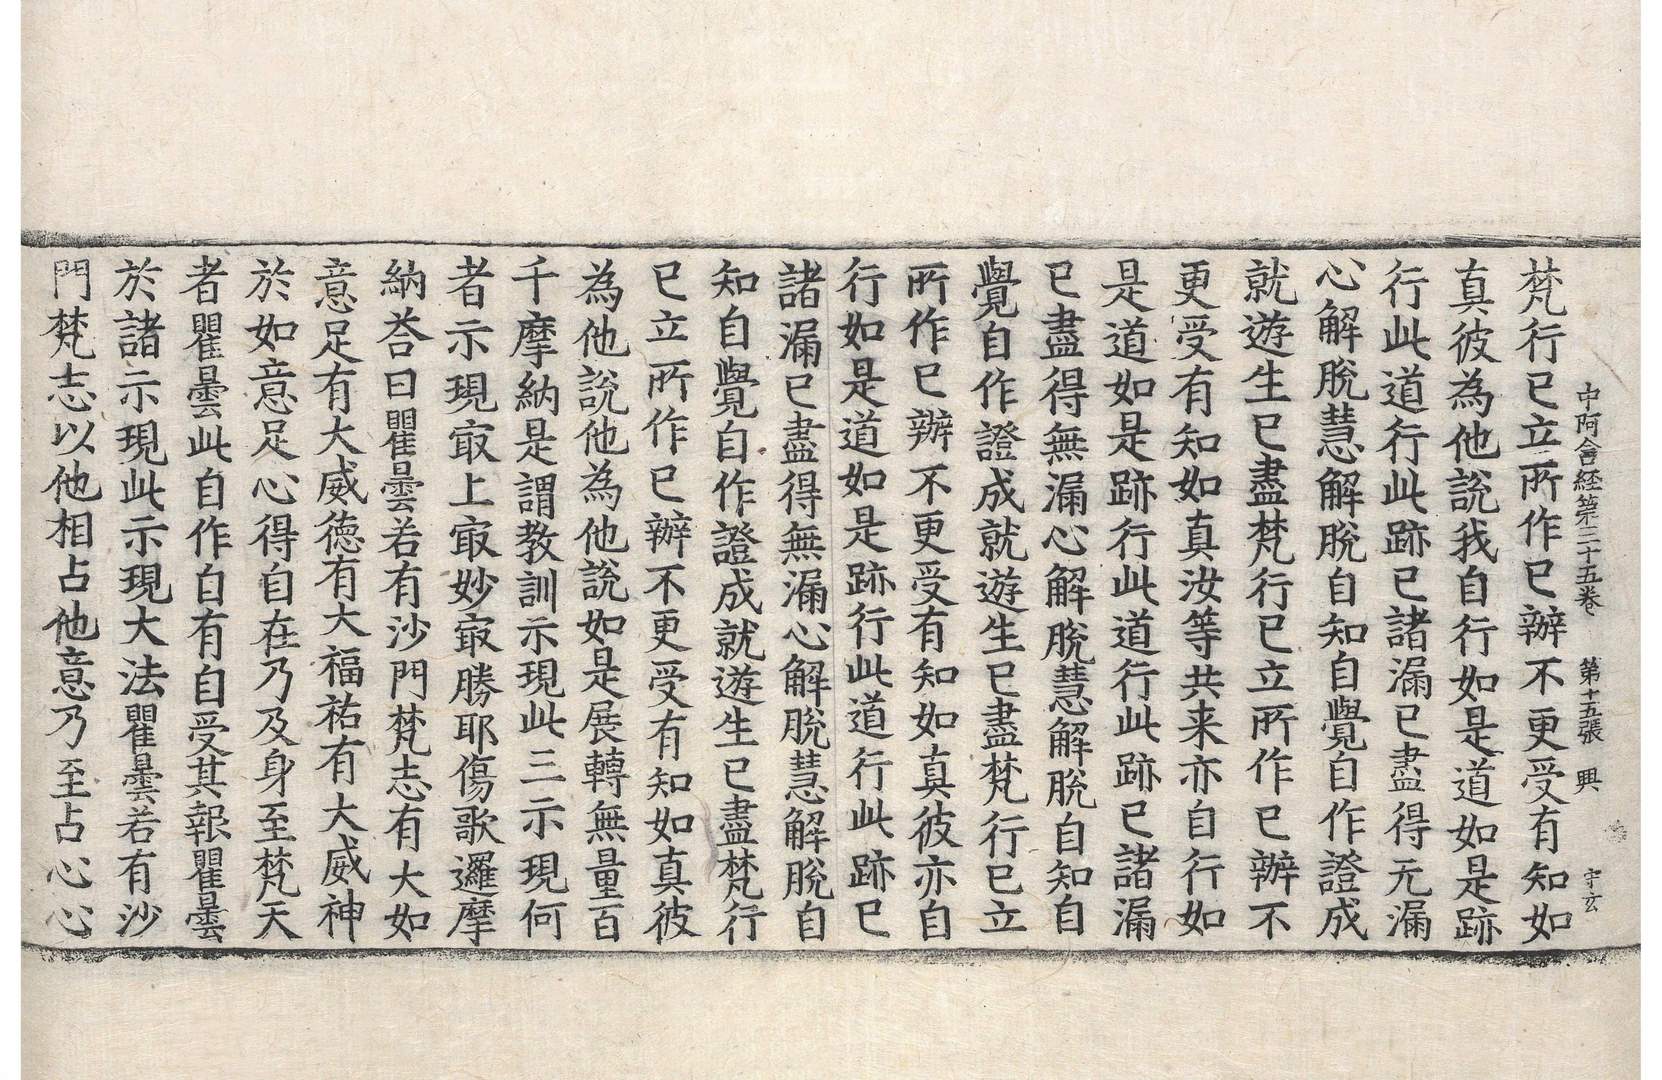 中阿含経第三十五卷　第十五張　興　守玄
梵行已立所作已辦不更受有知如
真彼為他說我自行如是道如是跡
行此道行此跡已諸漏已盡得无漏
心解脫慧解脫自知自覺自作證成
就遊生已盡梵行已立所作已辦不
更受有知如真汝等共来亦自行如
是道如是跡行此道行此跡已諸漏
已盡得無漏心解脫慧解脫自知自
覺自作證成就遊生已盡梵行已立
所作已辦不更受有知如真彼亦自
行如是道如是跡行此道行此跡已
諸漏已盡得無漏心解脫慧解脫自
知自覺自作證成就遊生已盡梵行
已立所作已辦不更受有知如真彼
為他說他為他說如是展轉無量百
千摩納是謂教訓示現此三示現何
者示現㝡上㝡妙㝡勝耶傷歌邏摩
納荅曰瞿曇若有沙門梵志有大如
意足有大威徳有大福祐有大威神
於如意足心得自在乃及身至梵天
者瞿曇此自作自有自受其報瞿曇
於諸示現此示現大法瞿曇若有沙
門梵志以他相占他意乃至占心心